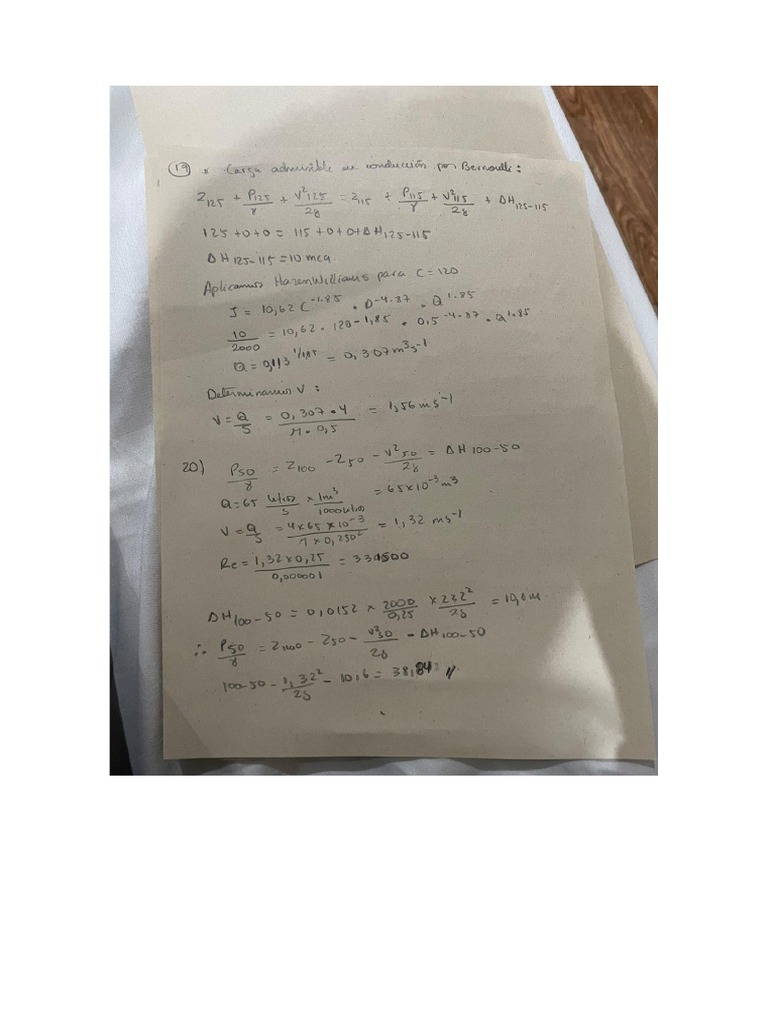 19 * Carga admisible en conducción por Bernoulli:
Z125 + P125/γ + V²125/2g = Z115 + P115/γ + V²115/2g + ΔH125-115
125 + 0 + 0 = 115 + 0 + 0 + ΔH125-115
ΔH125-115 = 10 mca.
Aplicamos HazenWilliams para C = 120
J = 10,62 C^-1.85 · D^-4.87 · Q^1.85
10/2000 = 10,62 · 120^-1,85 · 0,5^-4.87 · Q^1.85
Q = 0,113^1/1,85 = 0,307 m³s^-1
Determinamos V:
V = Q/S = 0,307 · 4 / π · 0,5 = 1,56 ms^-1
20) P50/γ = Z100 - Z50 - V²50/2g = ΔH100-50
Q = 65 litros/s × 1m³/1000 litros = 65×10^-3 m³
V = Q/S = 4×65×10^-3 / π × 0,250² = 1,32 ms^-1
Re = 1,32×0,25 / 0,000001 = 331500
ΔH100-50 = 0,0152 × 2000/0,25 × 232²/2g = 10,6 m.
∴ P50/γ = Z100 - Z50 - V²50/2g - ΔH100-50
100-50 - 1,32²/2g - 10,6 = 38,84